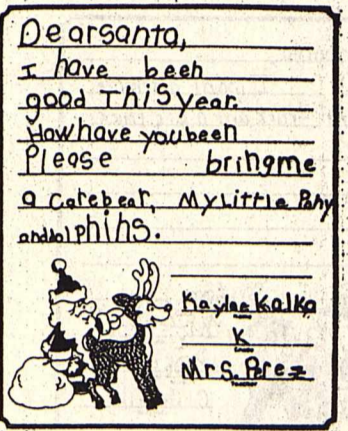 Dearsanta,
I have been
good This year.
How have you been
Please bring me
a Carebear, My Little Pony
and dolphins.
Kaylee Kalka
K
Mrs. Perez